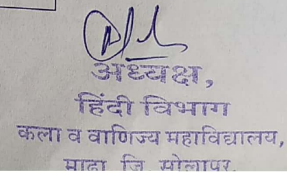 अध्यक्ष,
हिंदी विभाग
कला व वाणिज्य महाविद्यालय,
माढा जि सोलापूर.